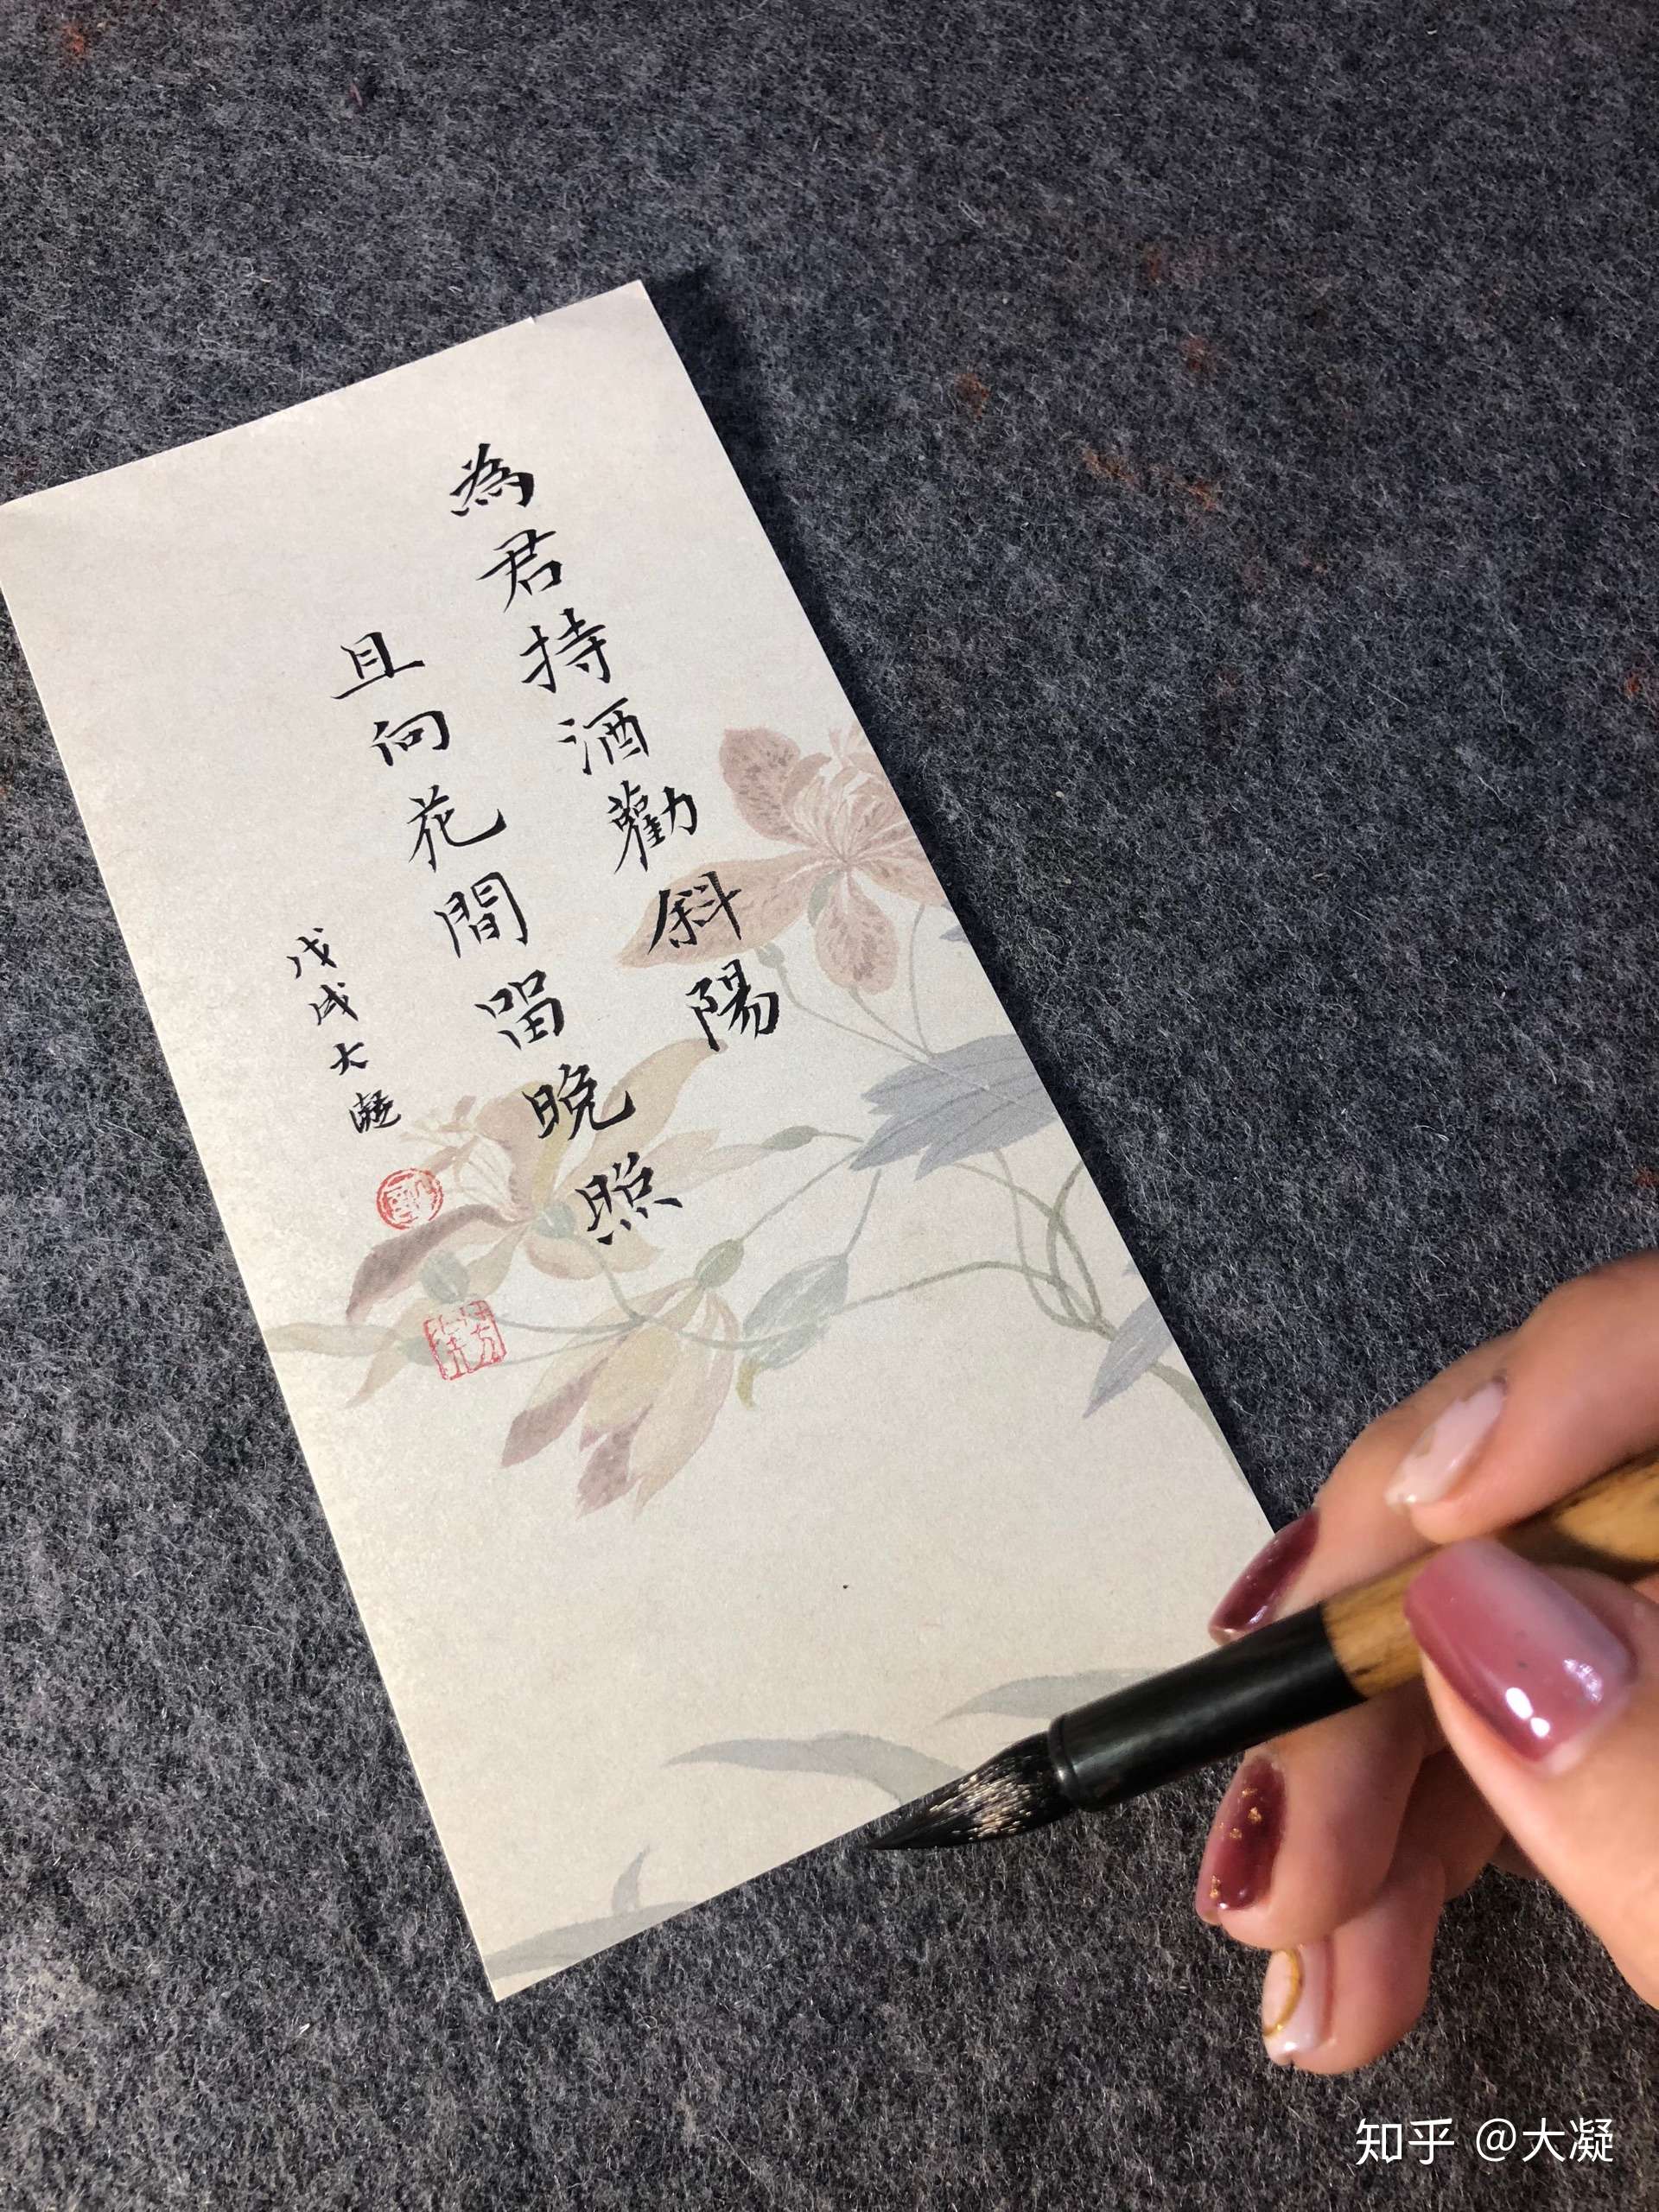 為君持酒勸斜陽
且向花間留晚照
戊戌大凝
知乎 @大凝